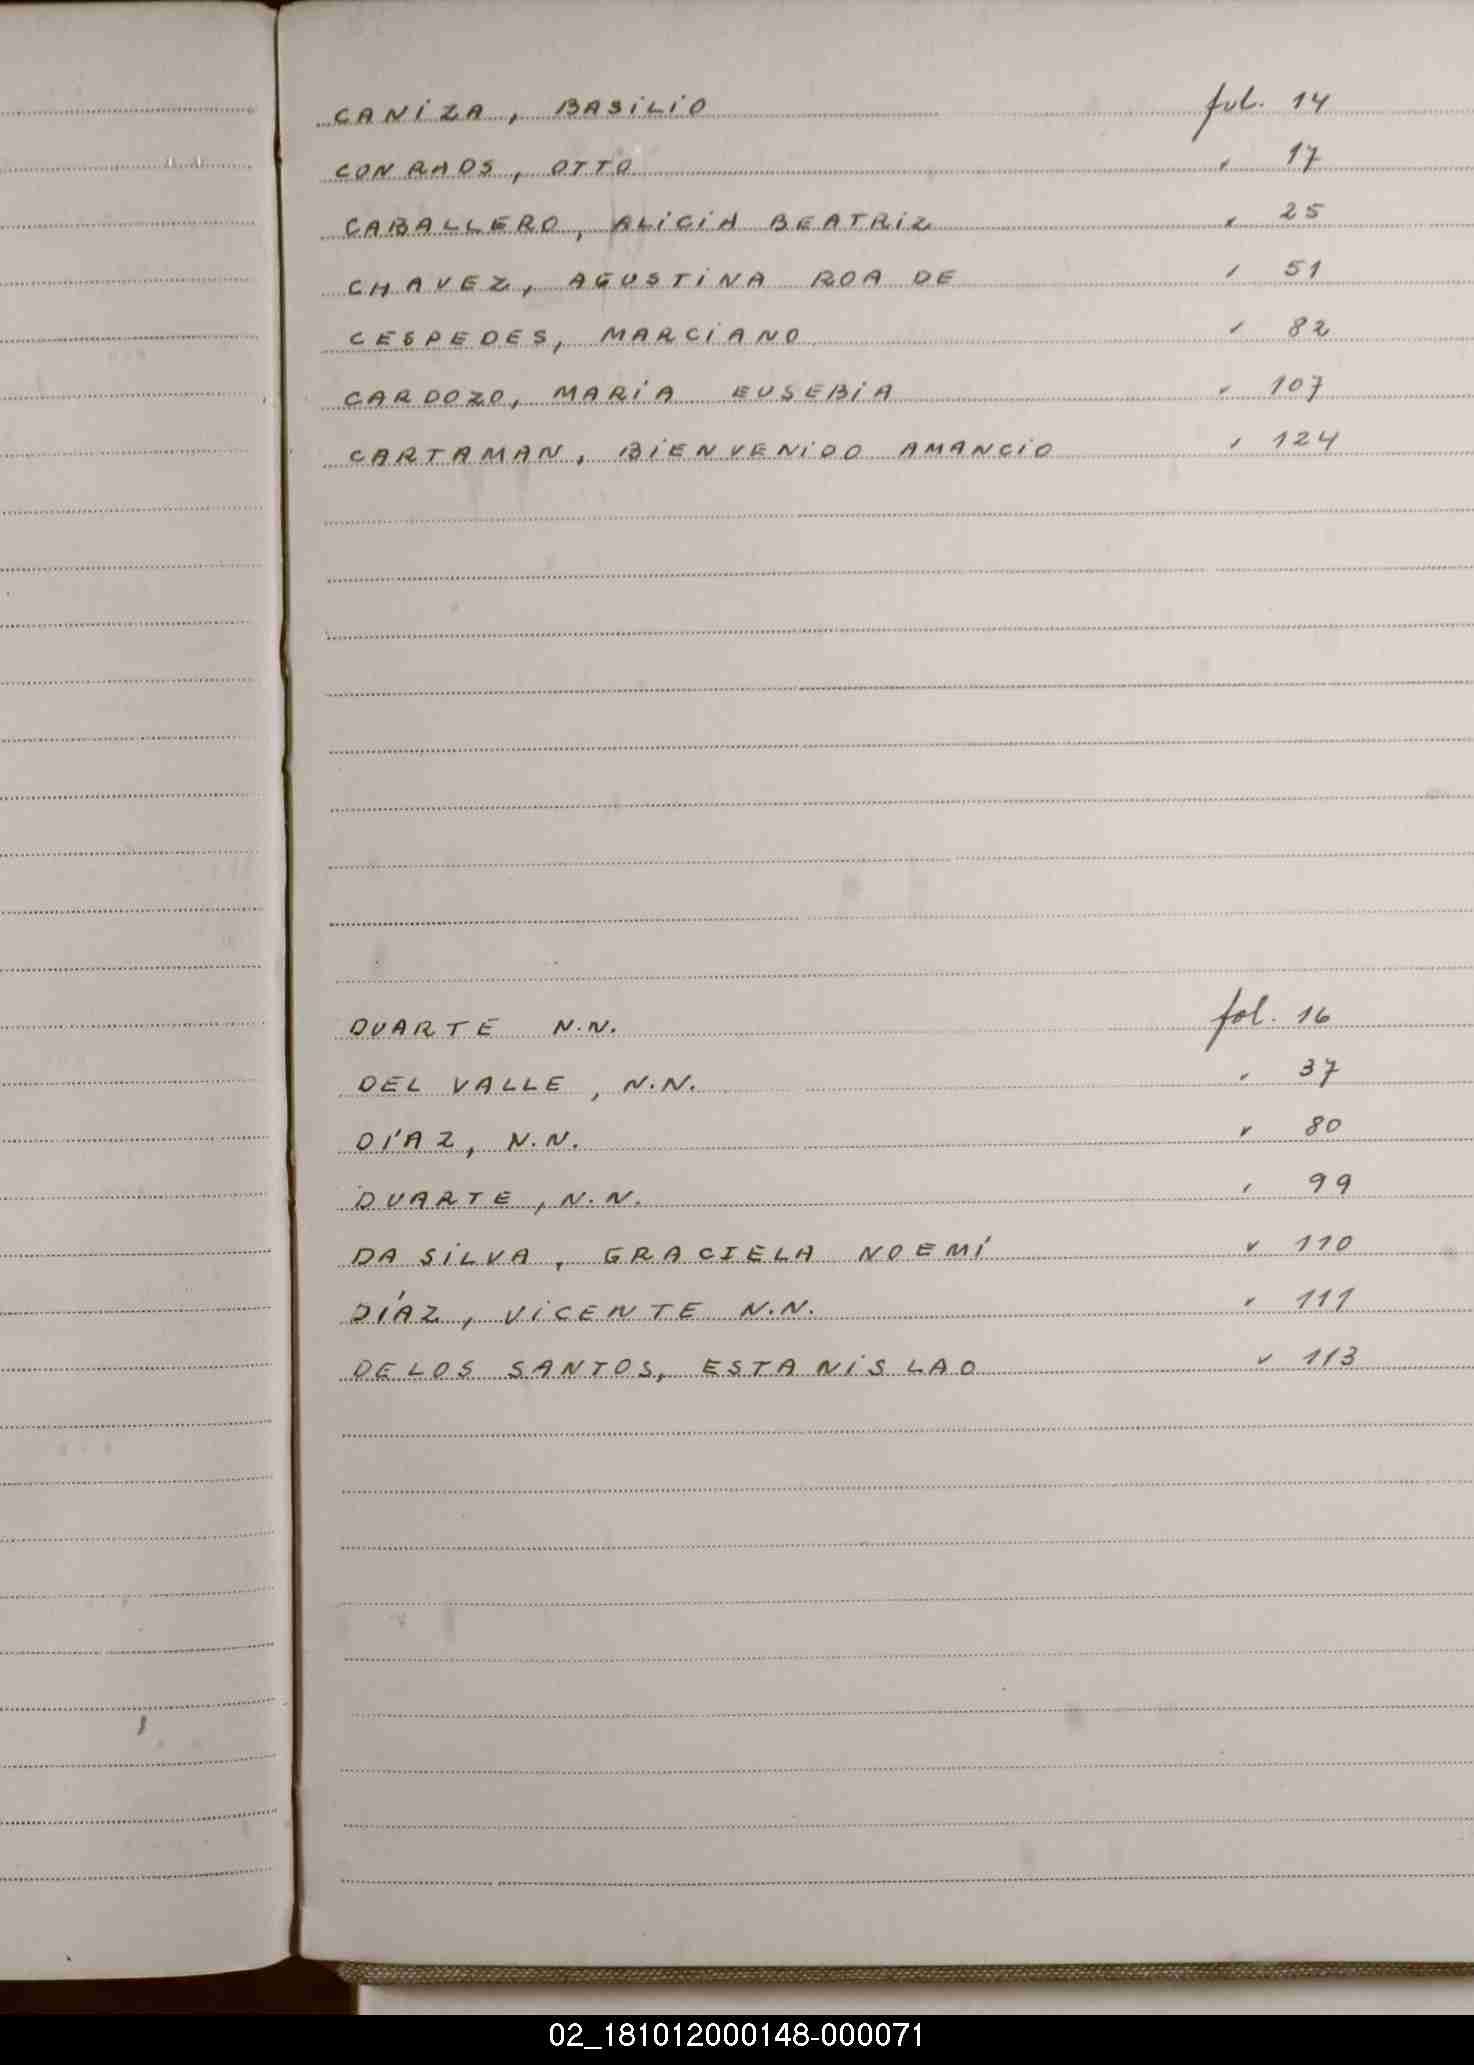 CANIZA, BASILIO fol. 14
CONRADS, OTTO " 17
CABALLERO, ALICIA BEATRIZ " 25
CHAVEZ, AGUSTINA ROA DE " 51
CESPEDES, MARCIANO " 82
CARDOZO, MARIA EUSEBIA " 107
CARTAMAN, BIENVENIDO AMANCIO " 124
DUARTE N.N. fol. 16
DEL VALLE, N.N. " 37
DÍAZ, N.N. " 80
DUARTE, N.N. " 99
DA SILVA, GRACIELA NOEMÍ " 110
DÍAZ, VICENTE N.N. " 111
DE LOS SANTOS, ESTANISLAO " 113
02_181012000148-000071